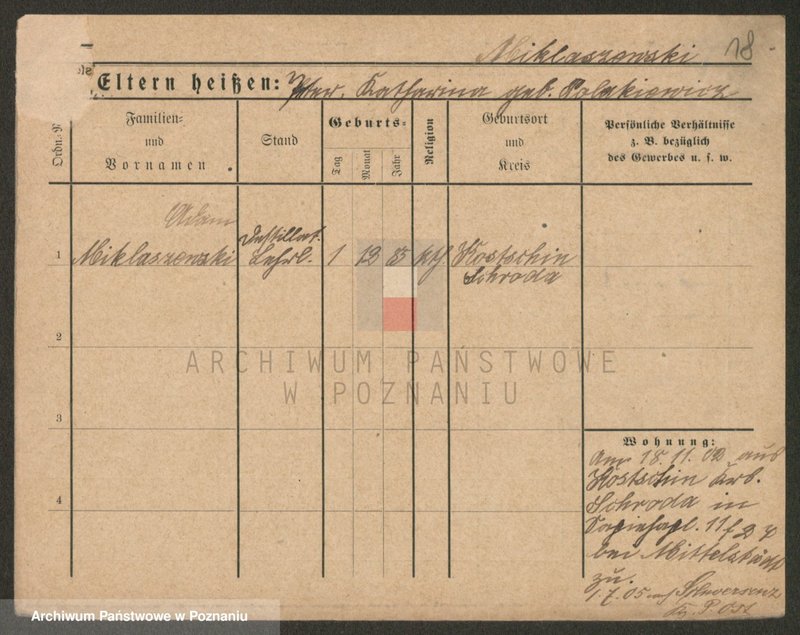 Miklaszewski 18
Eltern heißen: Peter, Katharina geb. Polakiewicz
Ordn.-N
Familien-
und
Vornamen.
Stand
Geburts-
Tag
Monat
Jahr
Religion
Geburtsort
und
Kreis
Persönliche Verhältnisse
z. B. bezüglich
des Gewerbes u. s. w.
Adam
1 Miklaszewski Destillat. 1 12 85 kth. Kostschin
Lehrl. Schroda
2
ARCHIWUM PAŃSTWOWE
W POZNANIU
3
Wohnung:
Am 18.11.02 aus
4
Kostschin Krb.
Schroda in
Sapiehapl. 11
bei Mittelstädt
zu.
1.7.05 Schwersenz
Kr. P. Ost
Archiwum Państwowe w Poznaniu